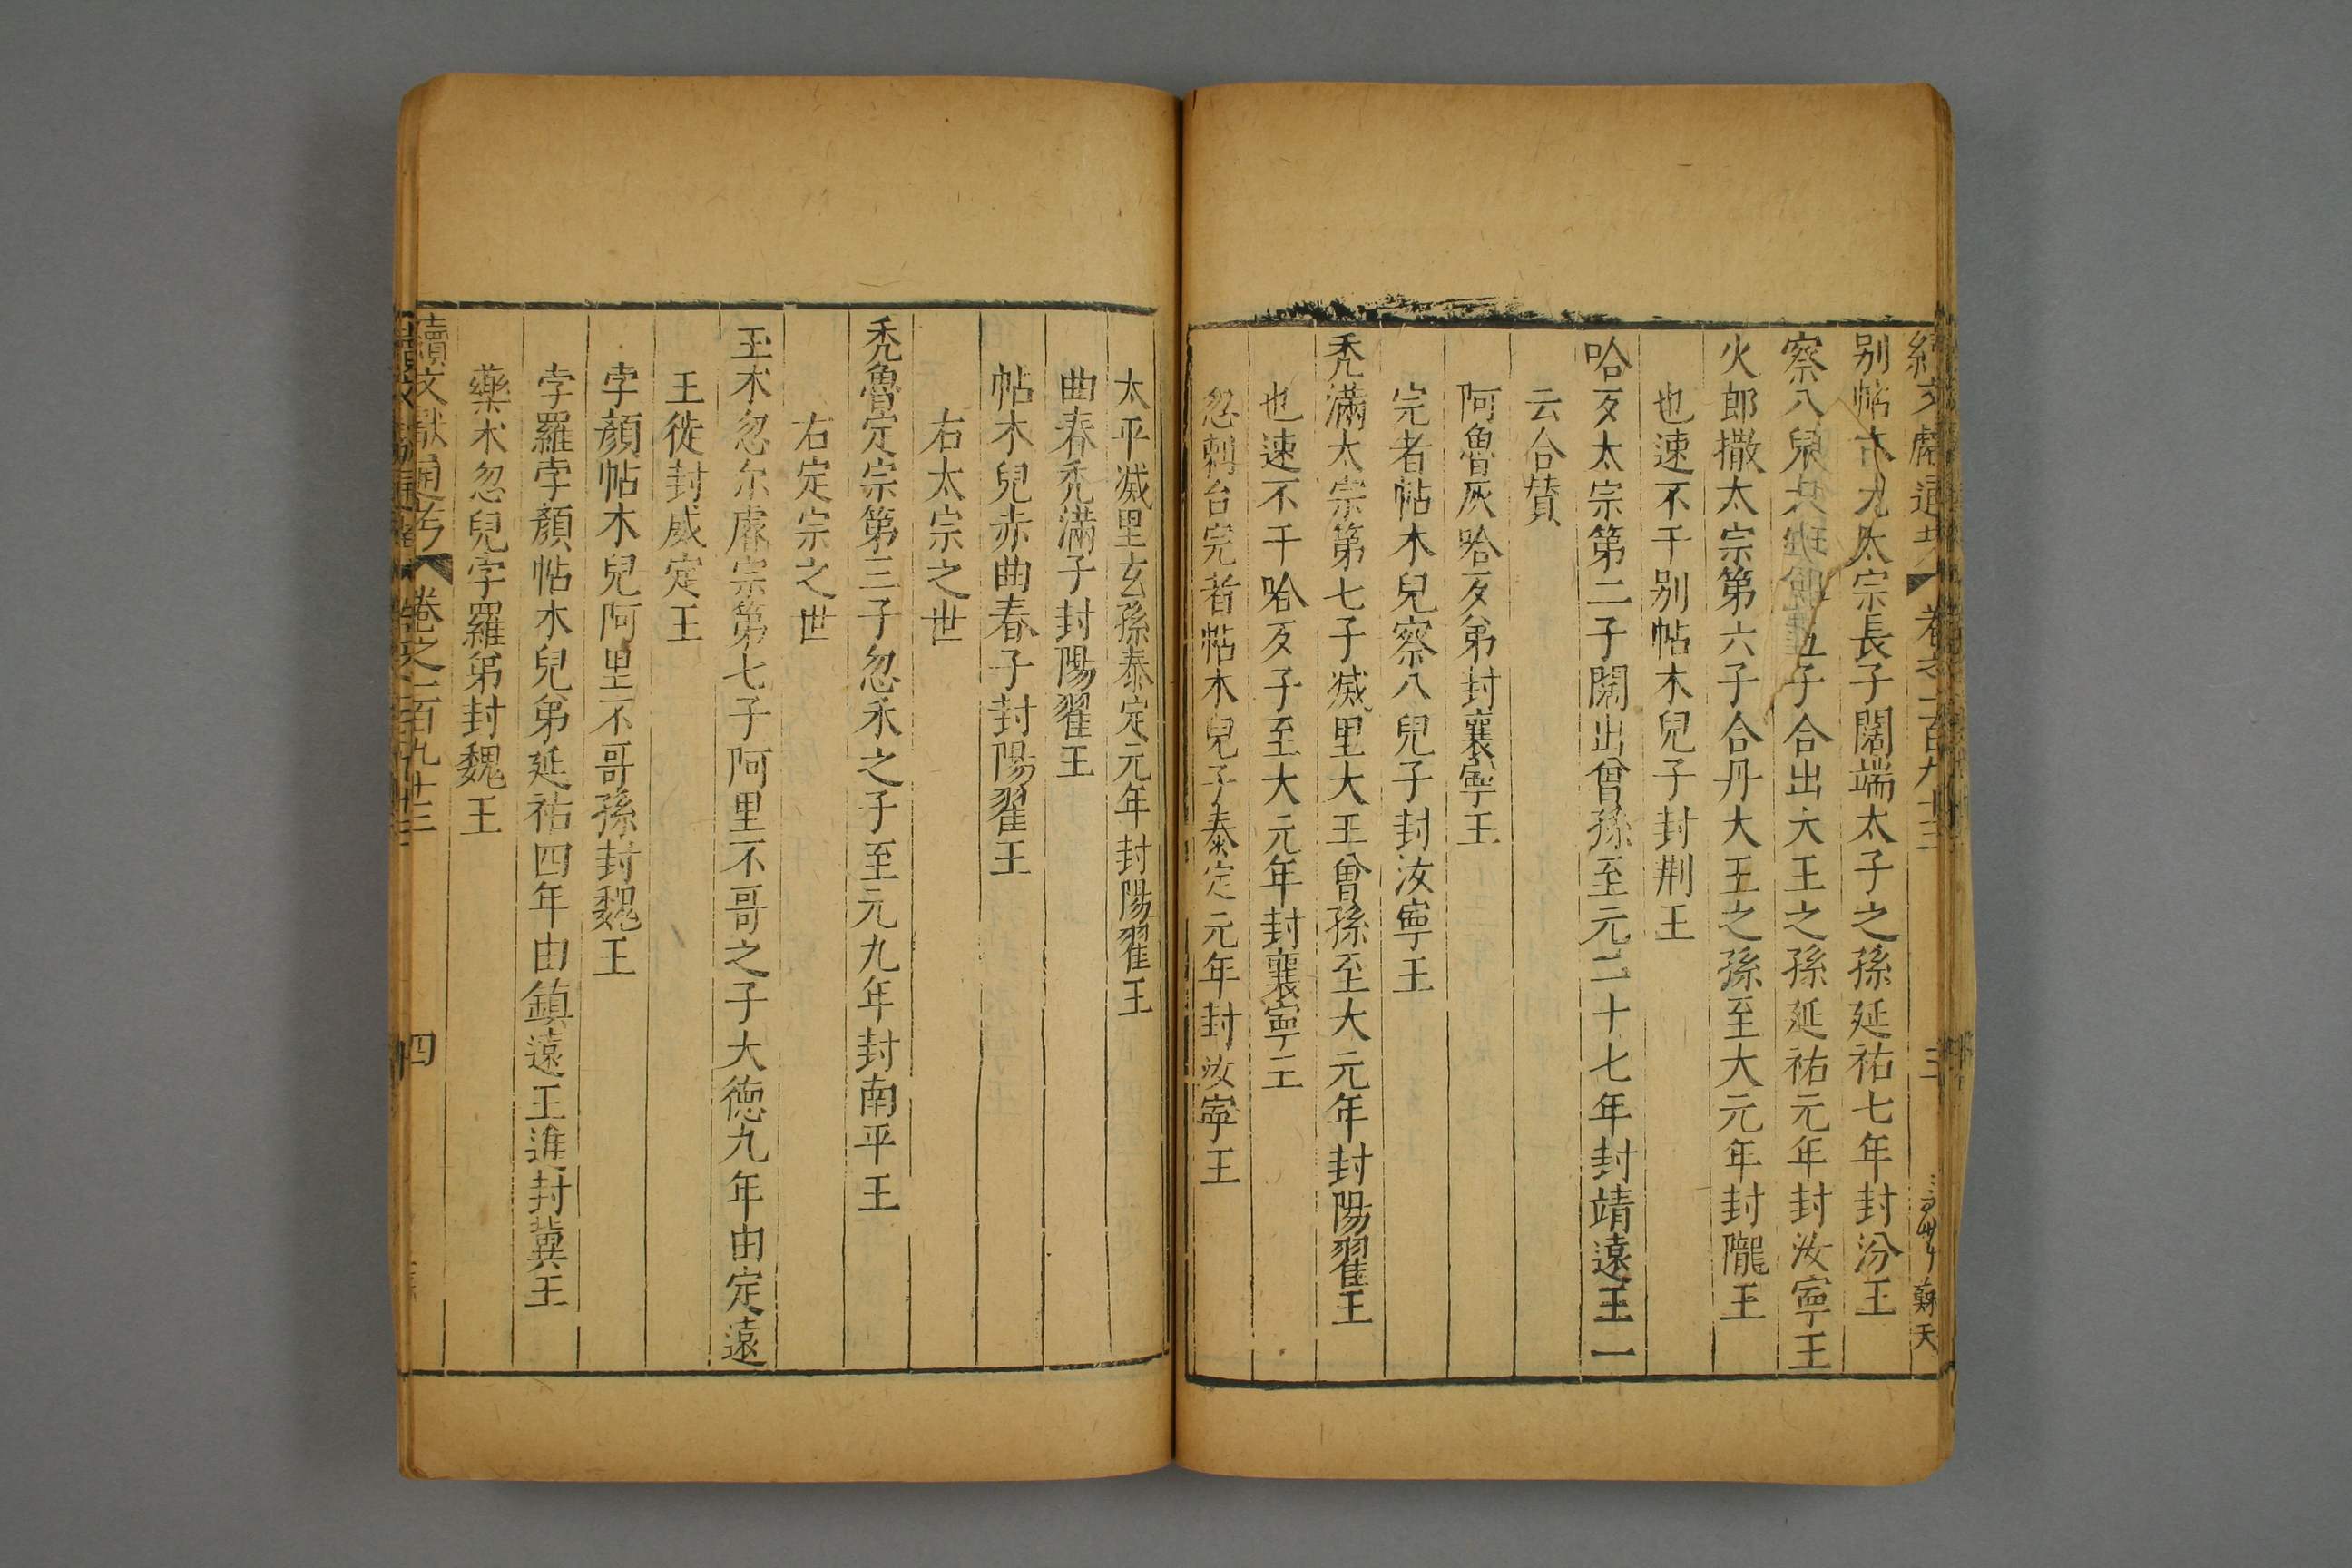 續文獻通考 卷之一百九十三 三
別帖木兒太宗長子闊端太子之孫延祐七年封汾王
察八兒太宗 五子合出大王之孫延祐元年封汝寧王
火郎撒太宗第六子合丹大王之孫至大元年封隴王
也速不干別帖木兒子封荆王
哈歹太宗第二子闊出曾孫至元二十七年封靖遠王一
云合賛
阿魯灰哈歹弟封襄寧王
完者帖木兒察八兒子封汝寧王
禿滿太宗第七子滅里大王曾孫至大元年封陽翟王
也速不干哈歹子至大元年封襄寧王
忽剌台完者帖木兒子泰定元年封汝寧王
太平滅里玄孫泰定元年封陽翟王
曲春禿滿子封陽翟王
帖木兒赤曲春子封陽翟王
右太宗之世
禿魯定宗第三子忽禾之子至元九年封南平王
右定宗之世
玉木忽尔睿宗第七子阿里不哥之子大德九年由定遠
王徙封威定王
孛顏帖木兒阿里不哥孫封魏王
孛羅孛顏帖木兒弟延祐四年由鎮遠王進封冀王
藥木忽兒孛羅弟封魏王
續文獻通考 卷之一百九十三 四